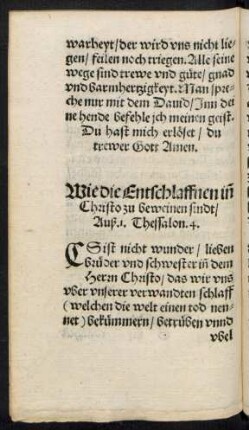 warheyt/der wird vns nicht lie-
gen/feilen noch triegen. Alle seine
wege sind trewe vnd güte/gnad
vnd barmhertzigkeyt. Man spre-
che nur mit dem Dauid/Jnn dei
ne hende befehle ich meinen geist
Du hast mich erlöset/du
trewer Gott Amen.
Wie die Entschlaffnen in
Christo zu beweinen sindt/
Auß .1. Thessalon. 4.
ES ist nicht wunder/lieben
brüder vnd schwester in dem
Herrn Christo/das wir vns
vber vnserer verwandten schlaff
(welchen die welt einen tod nen-
net) bekümmern/betrüben vnnd
vbel